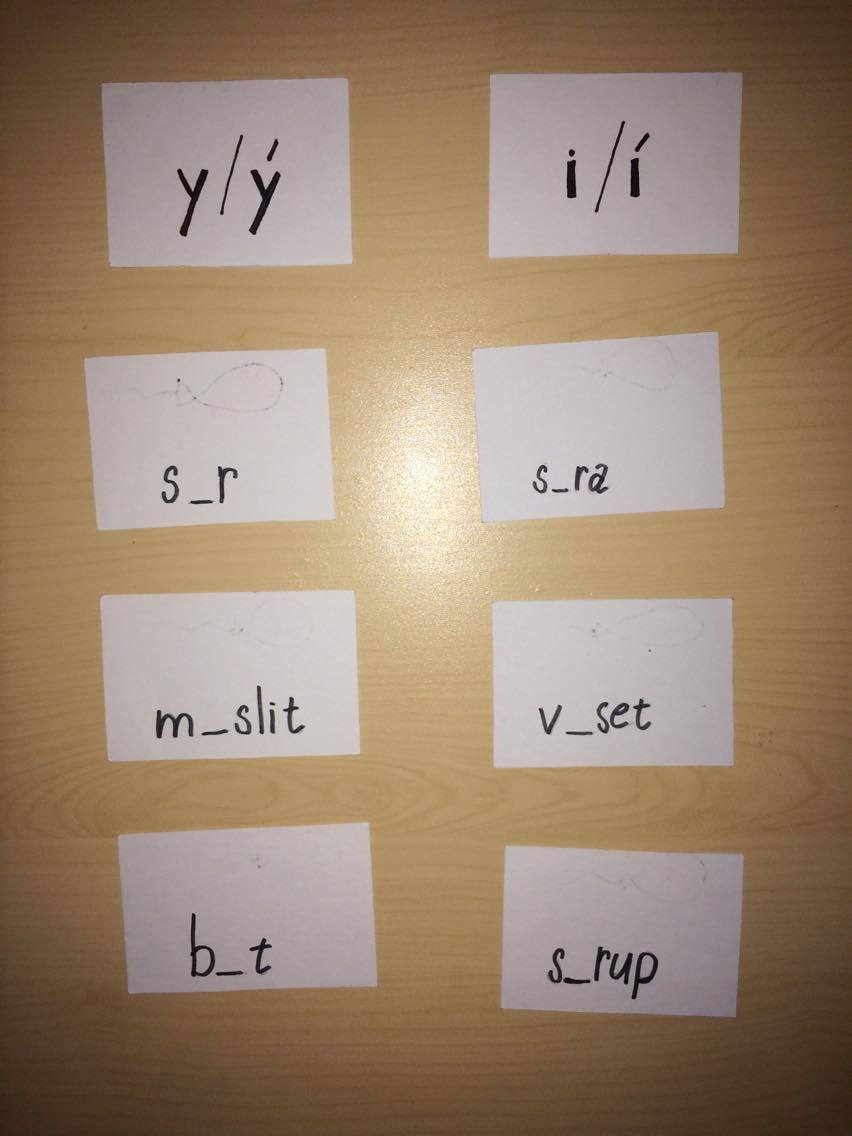 y/ý
i/í
s_r
s_ra
m_slit
v_set
b_t
s_rup